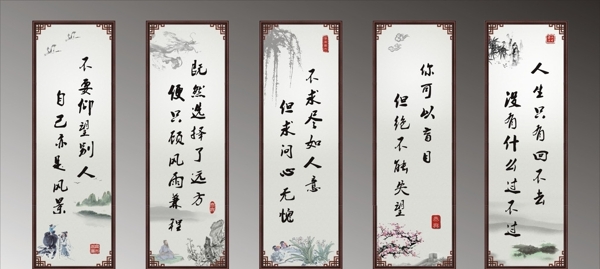 不要仰望别人
自己亦是风景
既然选择了远方
便只顾风雨兼程
不求尽如人意
但求问心无愧
你可以盲目
但绝不能失望
人生只有回不去
没有什么过不过